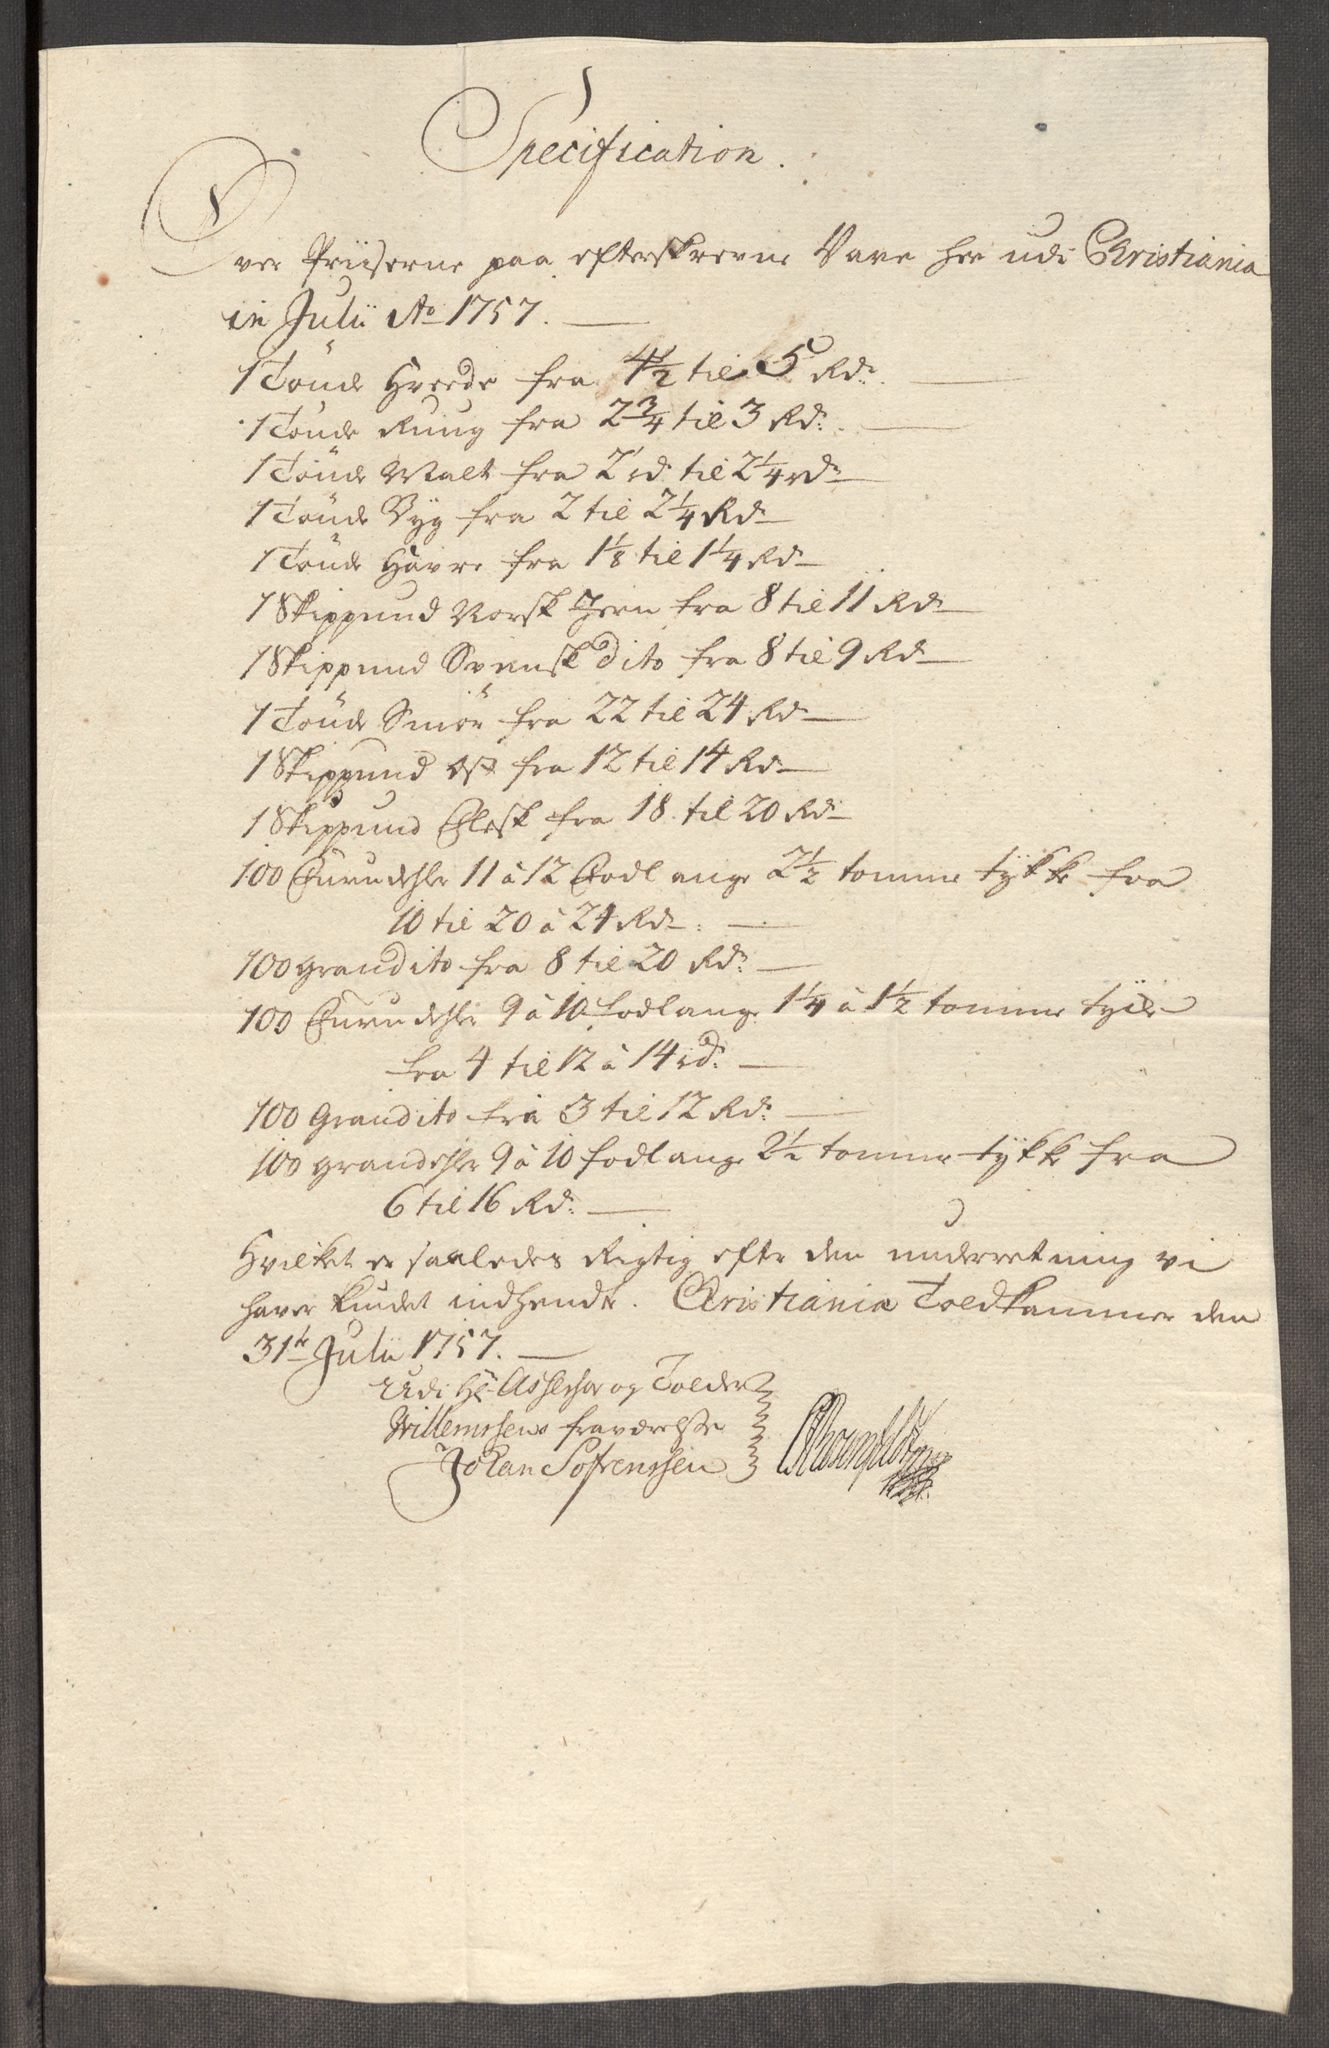 Specification.
Over Priiserne paa efterskrevne Vare her udi Christiania
in Julii Ao 1757.
1 Tönde Hvede fra 4½ til 5 Rdr.
1 Tönde Rüug fra 2¾ til 3 Rdr.
1 Tönde Malt fra 2 rd til 2¼ rdr
1 Tönde Byg fra 2 til 2¼ Rdr
1 Tönde Havre fra 1⅛ til 1¼ Rdr
1 Skippund Norsk Jern fra 8 til 11 Rdr
1 Skippund Svensk dito fra 8 til 9 Rdr
1 Tönde Smör fra 22 til 24 Rdr
1 Skippund Ost fra 12 til 14 Rdr
1 Skippund Flesk fra 18 til 20 Rdr
100 Furudehler 11 à 12 Fodlange 2½ tomme tÿkke fra
10 til 20 à 24 Rdr.
100 Grandito fra 8 til 20 Rdr.
100 Furudehler 9 à 10 fodlange 1¼ à 1½ tomme
fra 4 til 12 à 14 rdr.
100 Grandito fra 3 til 12 Rdr.
100 Grandehler 9 à 10 fodlange 2½ tomme tÿkke fra
6 til 16 Rdr.
Hvilket er saaledes Rigtig efter den underretning vi
haver kundet indhendte. Christiania Toldkammer den
31te Julii 1757.
Udi Hr Assessor og Tolder
Willemssens fraværelse
Johan Sofrenssen